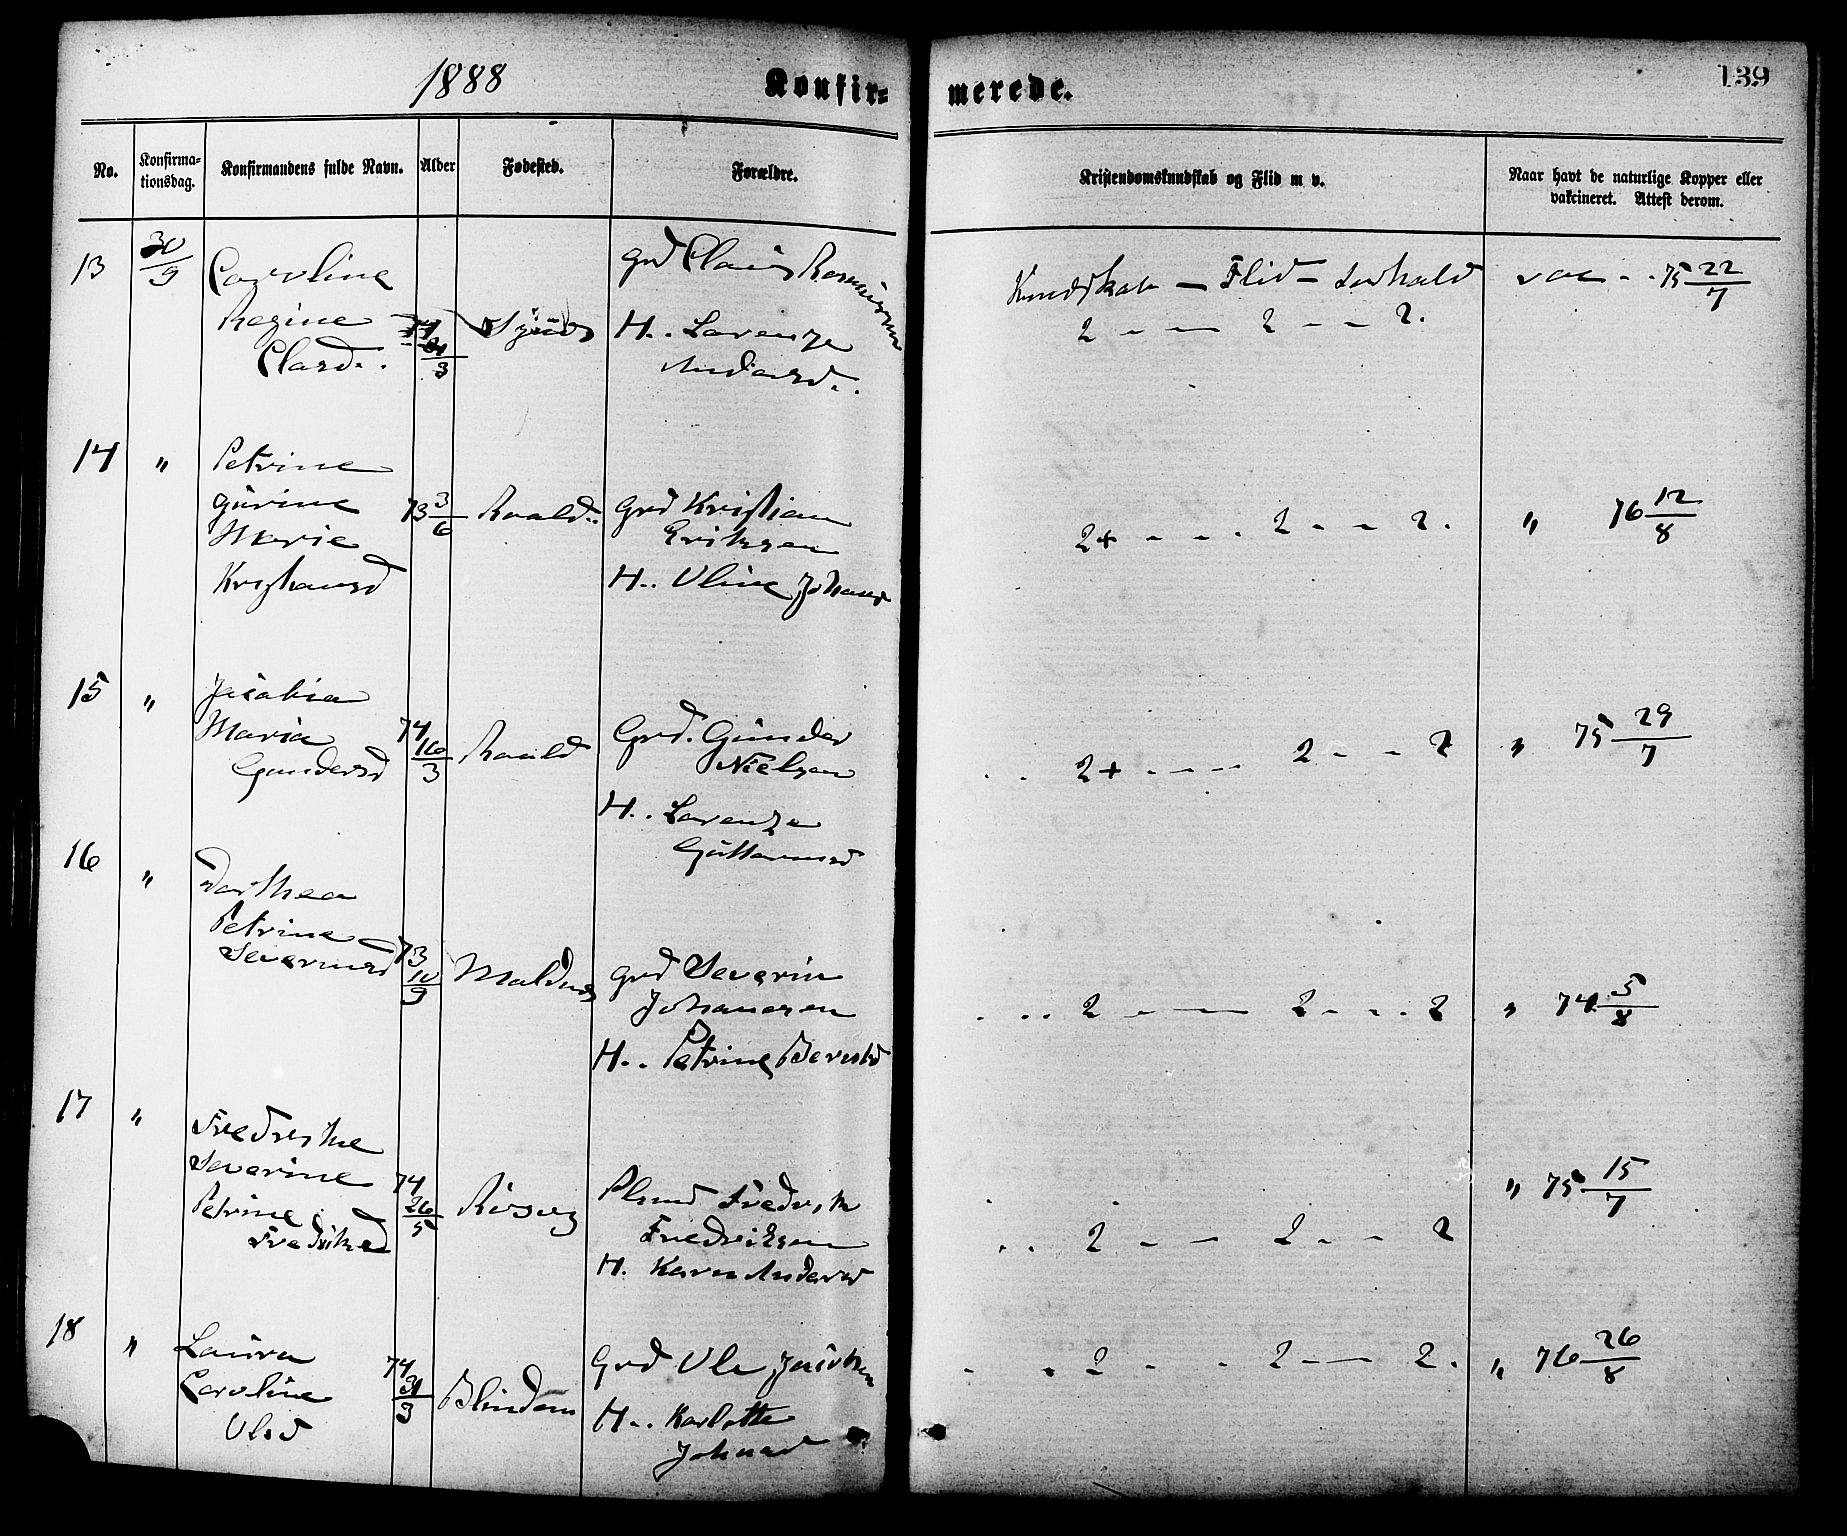 1888
Konfir=
merede.
139
No.
Konfirma-
tionsdag.
Konfirmandens fulde Navn.
Alder
Fødested.
Forældre.
Kristendomskundskab og Flid m v.
Naar havt de naturlige Kopper eller
vakcineret. Attest derom.
13 30/9 Caroline
Regine
Clasd.
74 31/3
grd Claus Rasmusen
H.. Lorenze
Andersd..
Kundskab — Flid – Forhold
2 - - — 2 - - 2.
vac - - 75 22/7
14 " Petrine
Gurine
Marie
Kristiansd
73 3/6 Roald..
grd Kristian
Eriksen
H.. Oline Johans
2+ - - - . 2 - - 2.
" 76 12/8
15 " Jacobia
Maria
Gundersd
74 16/3 Roald
Grd. Gunder
Nielsen
H.. Lorenze
Guttormsd
. . 2+ - - - — 2 - - 2
" 75 29/7
16 " Dorthea
Petrine
Severinsd
73 10/9
grd Severin
Johansen
H.. Petrine Berntsd
. . . 2 - — — 2 - - . 2
" 74 5/8
17 " Fredrikke
Severine
Petrine
Fredriksd
74 26/5 Risøy
Plsmd Fredrik
Fredriksen
H. Karen Andersd
. . 2 - — 2 - - 2
" 75 15/7
18 " Laura
Caroline
Olsd
74 31/3 Blindem
Grd Ole Jacobsen
H.. Karlotte
Johnsd
. . 2 - . - 2 - — 2.
" 76 26/8